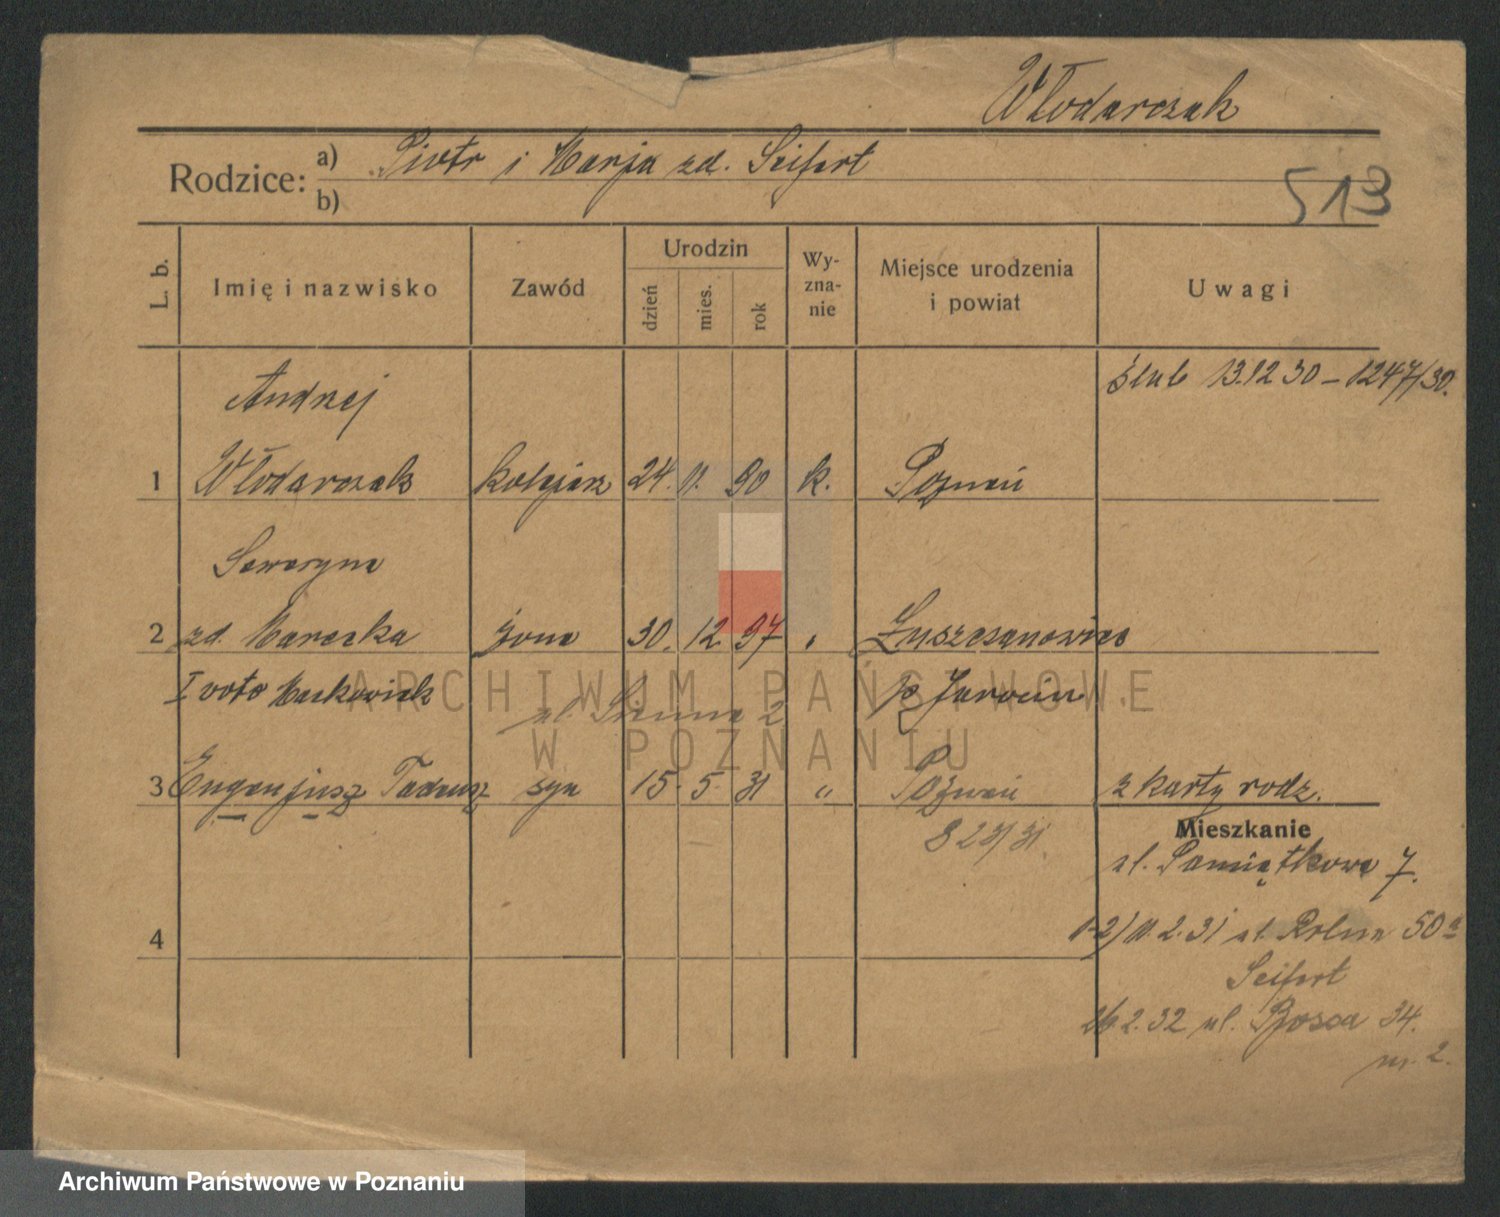 Włodarczak
Rodzice: a) Piotr i Marja zd. Seifert
b)
513
L. b.
Imię i nazwisko
Zawód
Urodzin
dzień
mies.
rok
Wy-
zna-
nie
Miejsce urodzenia
i powiat
Uwagi
Andrzej
ślub 13.12 30 – 1247/30.
1 Włodarczak kolejarz 24. 11. 90 k. Poznań
Seweryna
2 zd. Marecka żona 30. 12. 97 "
I voto Markowiak
p. Jarocin
3 Eugenjusz Tadeusz syn 15. 5. 31 " Poznań z karty rodz.
823/31
Mieszkanie
ul. Pamiątkowa 7.
4
1-2) 11.2.31 ul. Rolna 50a
Seifert
26.2.32 ul. Bosca 34.
m. 2.
ARCHIWUM PAŃSTWOWE
W POZNANIU
Archiwum Państwowe w Poznaniu